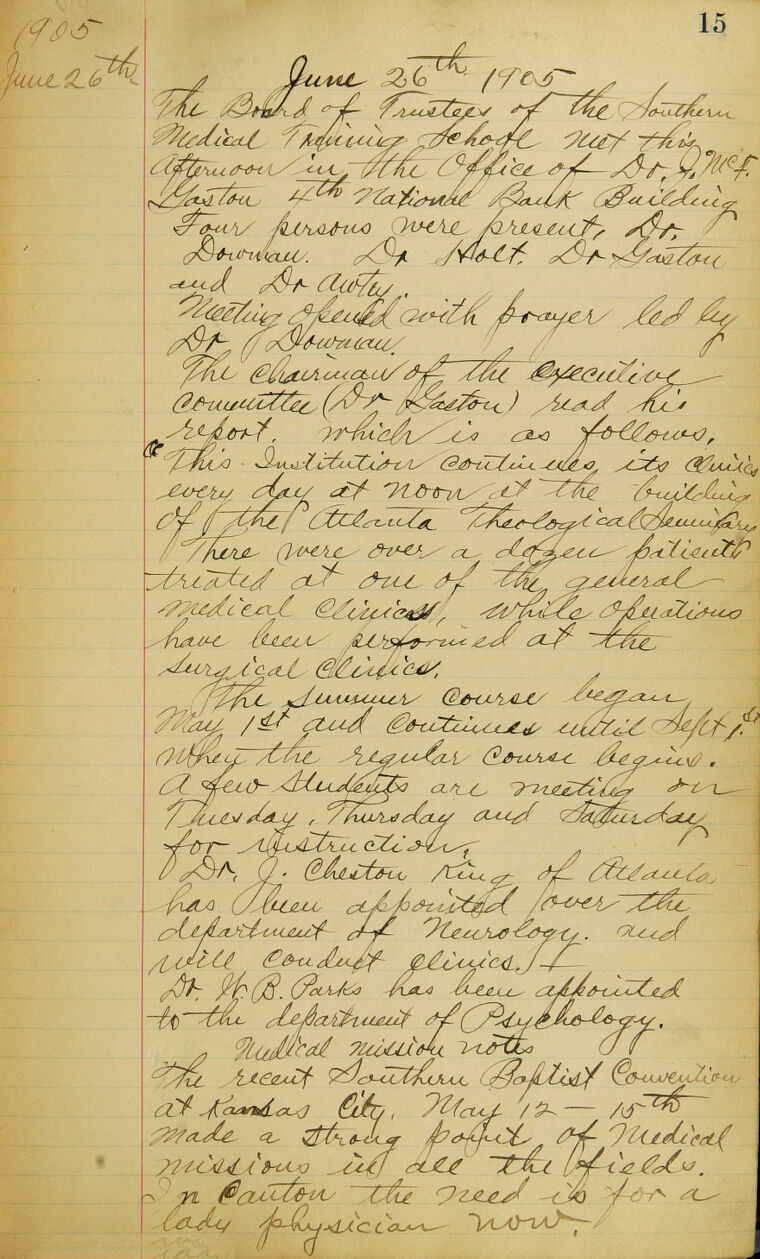 15
1905
June 26th
June 26th 1905
The Board of Trustees of the Southern
Medical Training School met this
Afternoon in the Office of Dr. J. McF.
Gaston 4th National Bank Building
Four persons were present, Dr.
Dowman. Dr Holt. Dr Gaston
and Dr Autry.
Meeting opened with prayer led by
Dr Dowman.
The chairman of the executive
committee (Dr Gaston) read his
report. which is as follows.
"This Institution continues its clinics
every day at noon at the building
of the Atlanta Theological Seminary
There were over a dozen patients
treated at one of the general
medical clinics, while operations
have been performed at the
surgical clinics.
The summer course began
May 1st and continues until Sept 1st
when the regular course begins.
A few students are meeting on
Tuesday, Thursday and Saturday
for instruction.
Dr. J. Cheston King of Atlanta
has been appointed over the
department of Neurology. and
will conduct clinics.
Dr. W. B. Parks has been appointed
to the department of Psychology.
Medical mission notes
The recent Southern Baptist Convention
at Kansas City, May 12 - 15th
made a strong point of Medical
missions in all the fields.
In Canton the need is for a
lady physician now.